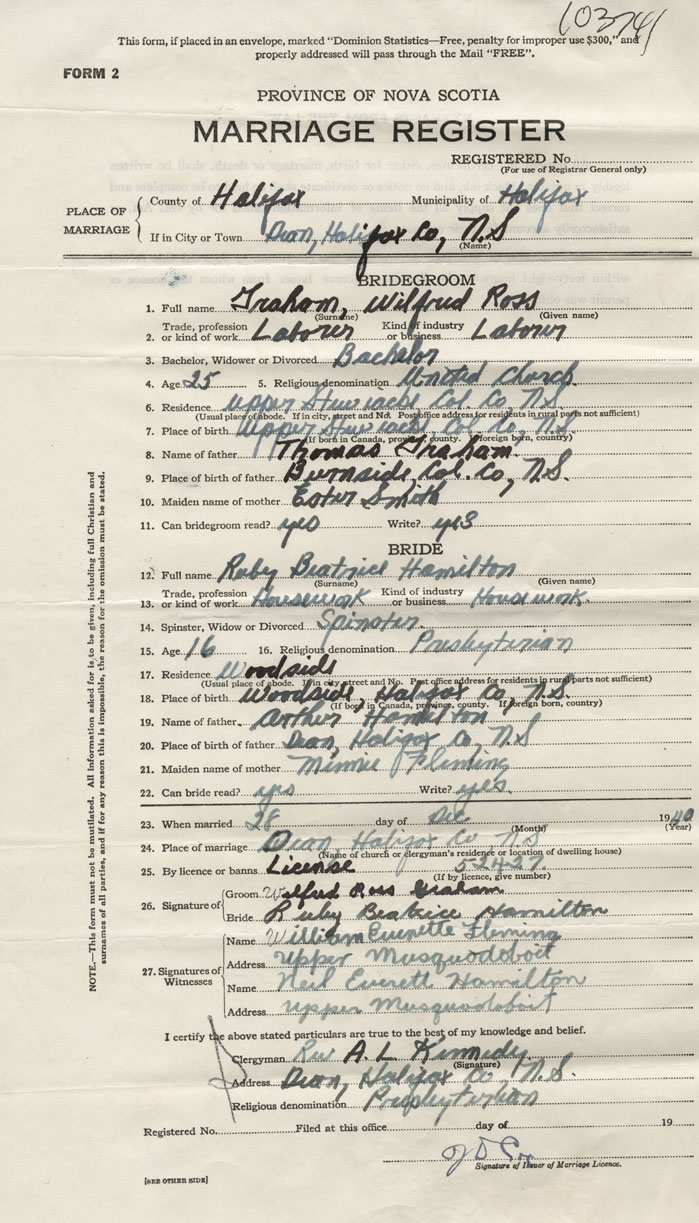 103741
This form, if placed in an envelope, marked "Dominion Statistics—Free, penalty for improper use $300," and
properly addressed will pass through the Mail "FREE".
FORM 2
PROVINCE OF NOVA SCOTIA
MARRIAGE REGISTER
REGISTERED No.
(For use of Registrar General only)
PLACE OF MARRIAGE
County of Halifax Municipality of Halifax
If in City or Town Dean, Halifax Co, N.S
(Name)
BRIDEGROOM
1. Full name Graham, Wilfred Ross
(Surname) (Given name)
2. Trade, profession or kind of work Laborer Kind of industry or business Laborer
3. Bachelor, Widower or Divorced Bachelor
4. Age 25 5. Religious denomination United Church
6. Residence Upper Stewiacke Col. Co, N.S.
(Usual place of abode. If in city, street and No. Post office address for residents in rural parts not sufficient)
7. Place of birth Upper Stewiacke Col. Co, N.S.
(If born in Canada, province, county. If foreign born, country)
8. Name of father Thomas Graham
9. Place of birth of father Burnside, Col. Co, N.S.
10. Maiden name of mother Ester Smith
11. Can bridegroom read? yes Write? yes
BRIDE
12. Full name Ruby Beatrice Hamilton
(Surname) (Given name)
13. Trade, profession or kind of work Housework Kind of industry or business Housework
14. Spinster, Widow or Divorced Spinster
15. Age 16 16. Religious denomination Presbyterian
17. Residence Woodside
(Usual place of abode. If in city, street and No. Post office address for residents in rural parts not sufficient)
18. Place of birth Woodside, Halifax Co, N.S.
(If born in Canada, province, county. If foreign born, country)
19. Name of father Arthur Hamilton
20. Place of birth of father Dean, Halifax Co, N.S
21. Maiden name of mother Minnie Fleming
22. Can bride read? yes Write? yes.
23. When married 28 day of Dec 1940
(Month) (Year)
24. Place of marriage Dean, Halifax Co N.S
(Name of church or clergyman's residence or location of dwelling house)
25. By licence or banns License 52427.
(If by licence, give number)
26. Signature of
Groom Wilfred Ross Graham
Bride Ruby Beatrice Hamilton
27. Signatures of Witnesses
Name William Everette Fleming
Address Upper Musquodoboit
Name Neil Everett Hamilton
Address Upper Musquodoboit
I certify the above stated particulars are true to the best of my knowledge and belief.
Clergyman Rev A. L. Kennedy
(Signature)
Address Dean, Halifax Co, N.S.
Religious denomination Presbyterian
Registered No. Filed at this office day of 19
Signature of Issuer of Marriage Licence.
[SEE OTHER SIDE]
NOTE.—This form must not be mutilated. All information asked for is to be given, including full Christian and
surnames of all parties, and if for any reason this is impossible, the reason for the omission must be stated.